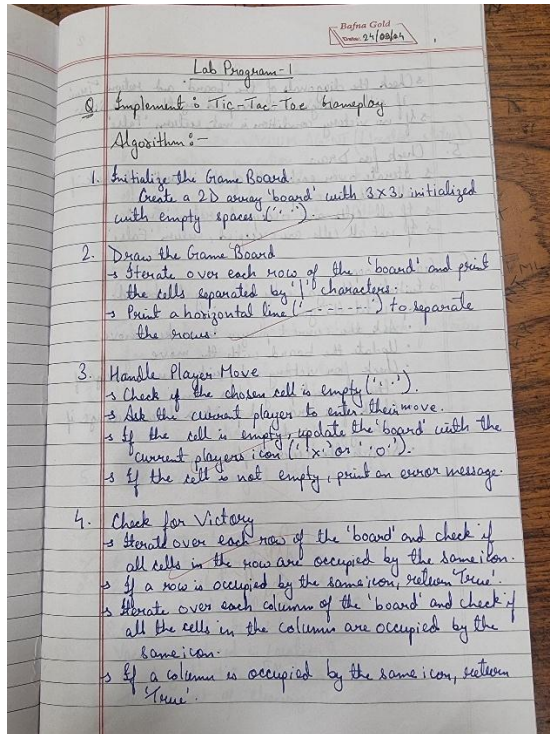 Bafna Gold
Date: 24/09/24
Lab Program-1
Q Implement : Tic-Tac-Toe Gameplay
Algorithm :-
1. Initialize the Game Board
Create a 2D array 'board' with 3x3, initialized
with empty spaces (' ').
2. Draw the Game Board
→ Iterate over each row of the 'board' and print
the cells separated by '|' characters.
→ Print a horizontal line ('-------') to separate
the rows.
3. Handle Player Move
→ Check if the chosen cell is empty (' ').
→ Ask the current player to enter their move.
→ If the cell is empty, update the 'board' with the
current players icon ('X' or 'O').
→ If the cell is not empty, print an error message.
4. Check for Victory
→ Iterate over each row of the 'board' and check if
all cells in the row are occupied by the same icon.
→ If a row is occupied by the same icon, return 'True'.
→ Iterate over each column of the 'board' and check if
all the cells in the column are occupied by the
same icon.
→ If a column is occupied by the same icon, return
'True'.